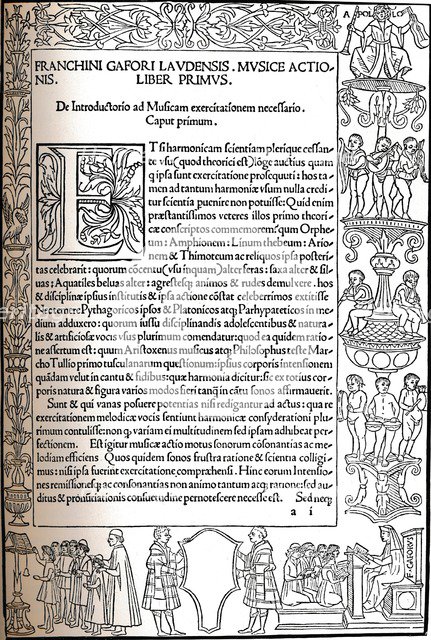 A POL LO
FRANCHINI GAFORI LAVDENSIS. MVSICE ACTIO-
NIS. LIBER PRIMVS.
De Introductorio ad Musicam exercitationem necessario.
Caput primum.
ETsi harmonicam scientiam plerique cessan-
te vsu (quod theorici est) lõge auctius quam
q ipsa sunt exercitatione prosequuti: hos ta-
men ad tantum harmoniæ vsum nulla credi-
tur scientia puenire non potuisse: Quid enim
præstantissimos veteres illos primo theori-
cæ conscriptos commemorem: qum Orphe-
um: Amphionem: Linum thebeum: Ario-
nem & Thimoteum ac reliquos ipsa posteri-
tas celebrarit: quorum cõcentu (vsu inquam) alter feras: saxa alter & sil-
uas: Aquatiles beluas alter: agrestesq; animos & rudes demulxere. hos
& disciplinæ ipsius institutis & ipsa actione cõstat celeberrimos extitisse
Pythagoricos ipsos & Platonicos atq; Parhypateticos in me-
dium adduxero: quorum iussu disciplinandis adolescentibus & natura-
lis & artificiosæ vocis vsus plurimum comendatur: quod ea quidem ratio-
ne assertum est: quum Aristoxenus musicus atq; Philosophus teste Mar-
cho Tullio primo tusculanarum questionum: ipsius corporis intensionem
quãdam velut in cantu & fidibus: quæ harmonia dicitur: sic ex totius cor-
poris natura & figura varios modos fieri tanq̃ in cãtu sonos affirmauerit.
Sunt & qui vanas posuere potentias nisi redigantur ad actus: qua re
exercitationem melodicæ vocis sentiunt harmonicæ consyderationi plu-
rimum contulisse: non q; variam ei multitudinem sed ipsam adhubeat per-
fectionem. Est igitur musicæ actio motus sonorum cõsonantias ac me-
lodiam efficiens Quos quidem sonos frustra ratione & scientia colligi-
mus: nisi ipsa fuerint exercitatione compræhensi. Hinc eorum Intensio-
nes remissionesq; ac consonantias non animo tantum atq; ratione: sed au-
ditus & pronũciationis consuetudine pernotescere necesse est. Sed neq;
a i
F. GAFORIVS